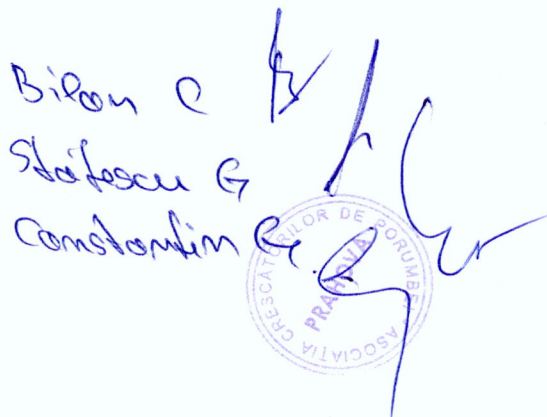 Bilan C
Stătescu G
Constantin G.
ASOCIAȚIA CRESCĂTORILOR DE PORUMBEI
PRAHOVA